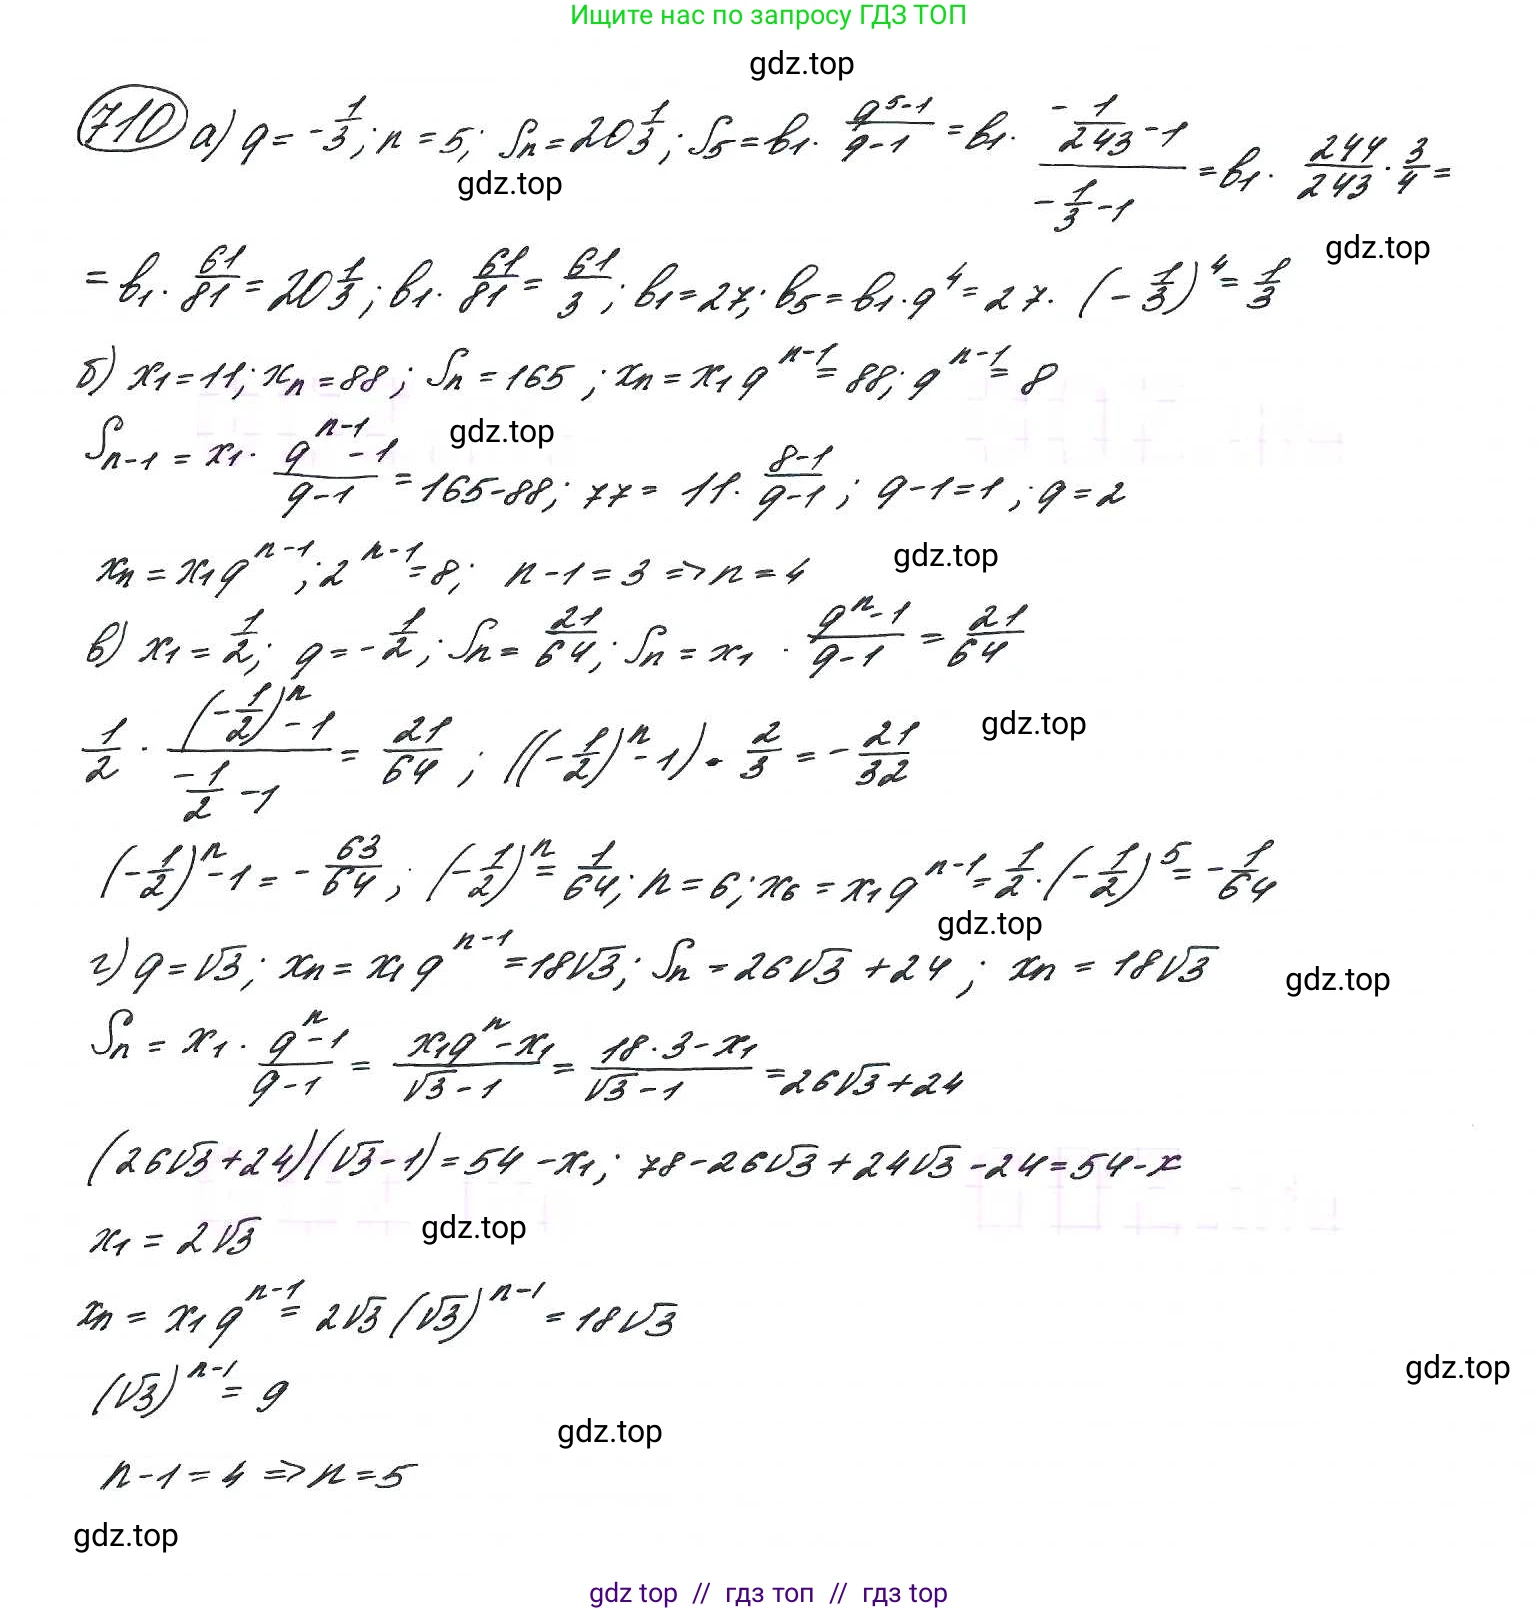 Ищите нас по запросу ГДЗ ТОП
gdz.top
710 а) q = -1/3; n = 5; Sn = 20 1/3; S5 = b1 · (q^5-1)/(q-1) = b1 · (-1/243 -1)/(-1/3 -1) = b1 · 244/243 · 3/4 =
gdz.top
gdz.top
= b1 · 61/81 = 20 1/3; b1 · 61/81 = 61/3; b1 = 27; b5 = b1 · q^4 = 27 · (-1/3)^4 = 1/3
б) x1 = 11; xn = 88; Sn = 165; xn = x1 q^(n-1) = 88; q^(n-1) = 8
gdz.top
Sn-1 = x1 · (q^(n-1) -1)/(q-1) = 165-88; 77 = 11 · (8-1)/(q-1); q-1=1; q=2
xn = x1 q^(n-1); 2^(n-1) = 8; n-1 = 3 => n = 4
gdz.top
в) x1 = 1/2; q = -1/2; Sn = 21/64; Sn = x1 · (q^n -1)/(q-1) = 21/64
1/2 · ((-1/2)^n -1)/(-1/2 -1) = 21/64; ((-1/2)^n -1) · 2/3 = -21/32
gdz.top
(-1/2)^n -1 = -63/64; (-1/2)^n = 1/64; n = 6; x6 = x1 q^(n-1) = 1/2 · (-1/2)^5 = -1/64
gdz.top
г) q = √3; xn = x1 q^(n-1) = 18√3; Sn = 26√3 + 24; xn = 18√3
gdz.top
Sn = x1 · (q^n -1)/(q-1) = (x1q^n - x1)/(√3 -1) = (18·3 - x1)/(√3 -1) = 26√3 + 24
(26√3+24)(√3-1) = 54 - x1; 78-26√3+24√3-24=54-x
x1 = 2√3
gdz.top
xn = x1 q^(n-1) = 2√3 (√3)^(n-1) = 18√3
(√3)^(n-1) = 9
gdz.top
gdz.top
n-1 = 4 => n = 5
gdz.top
gdz top // гдз топ // гдз top